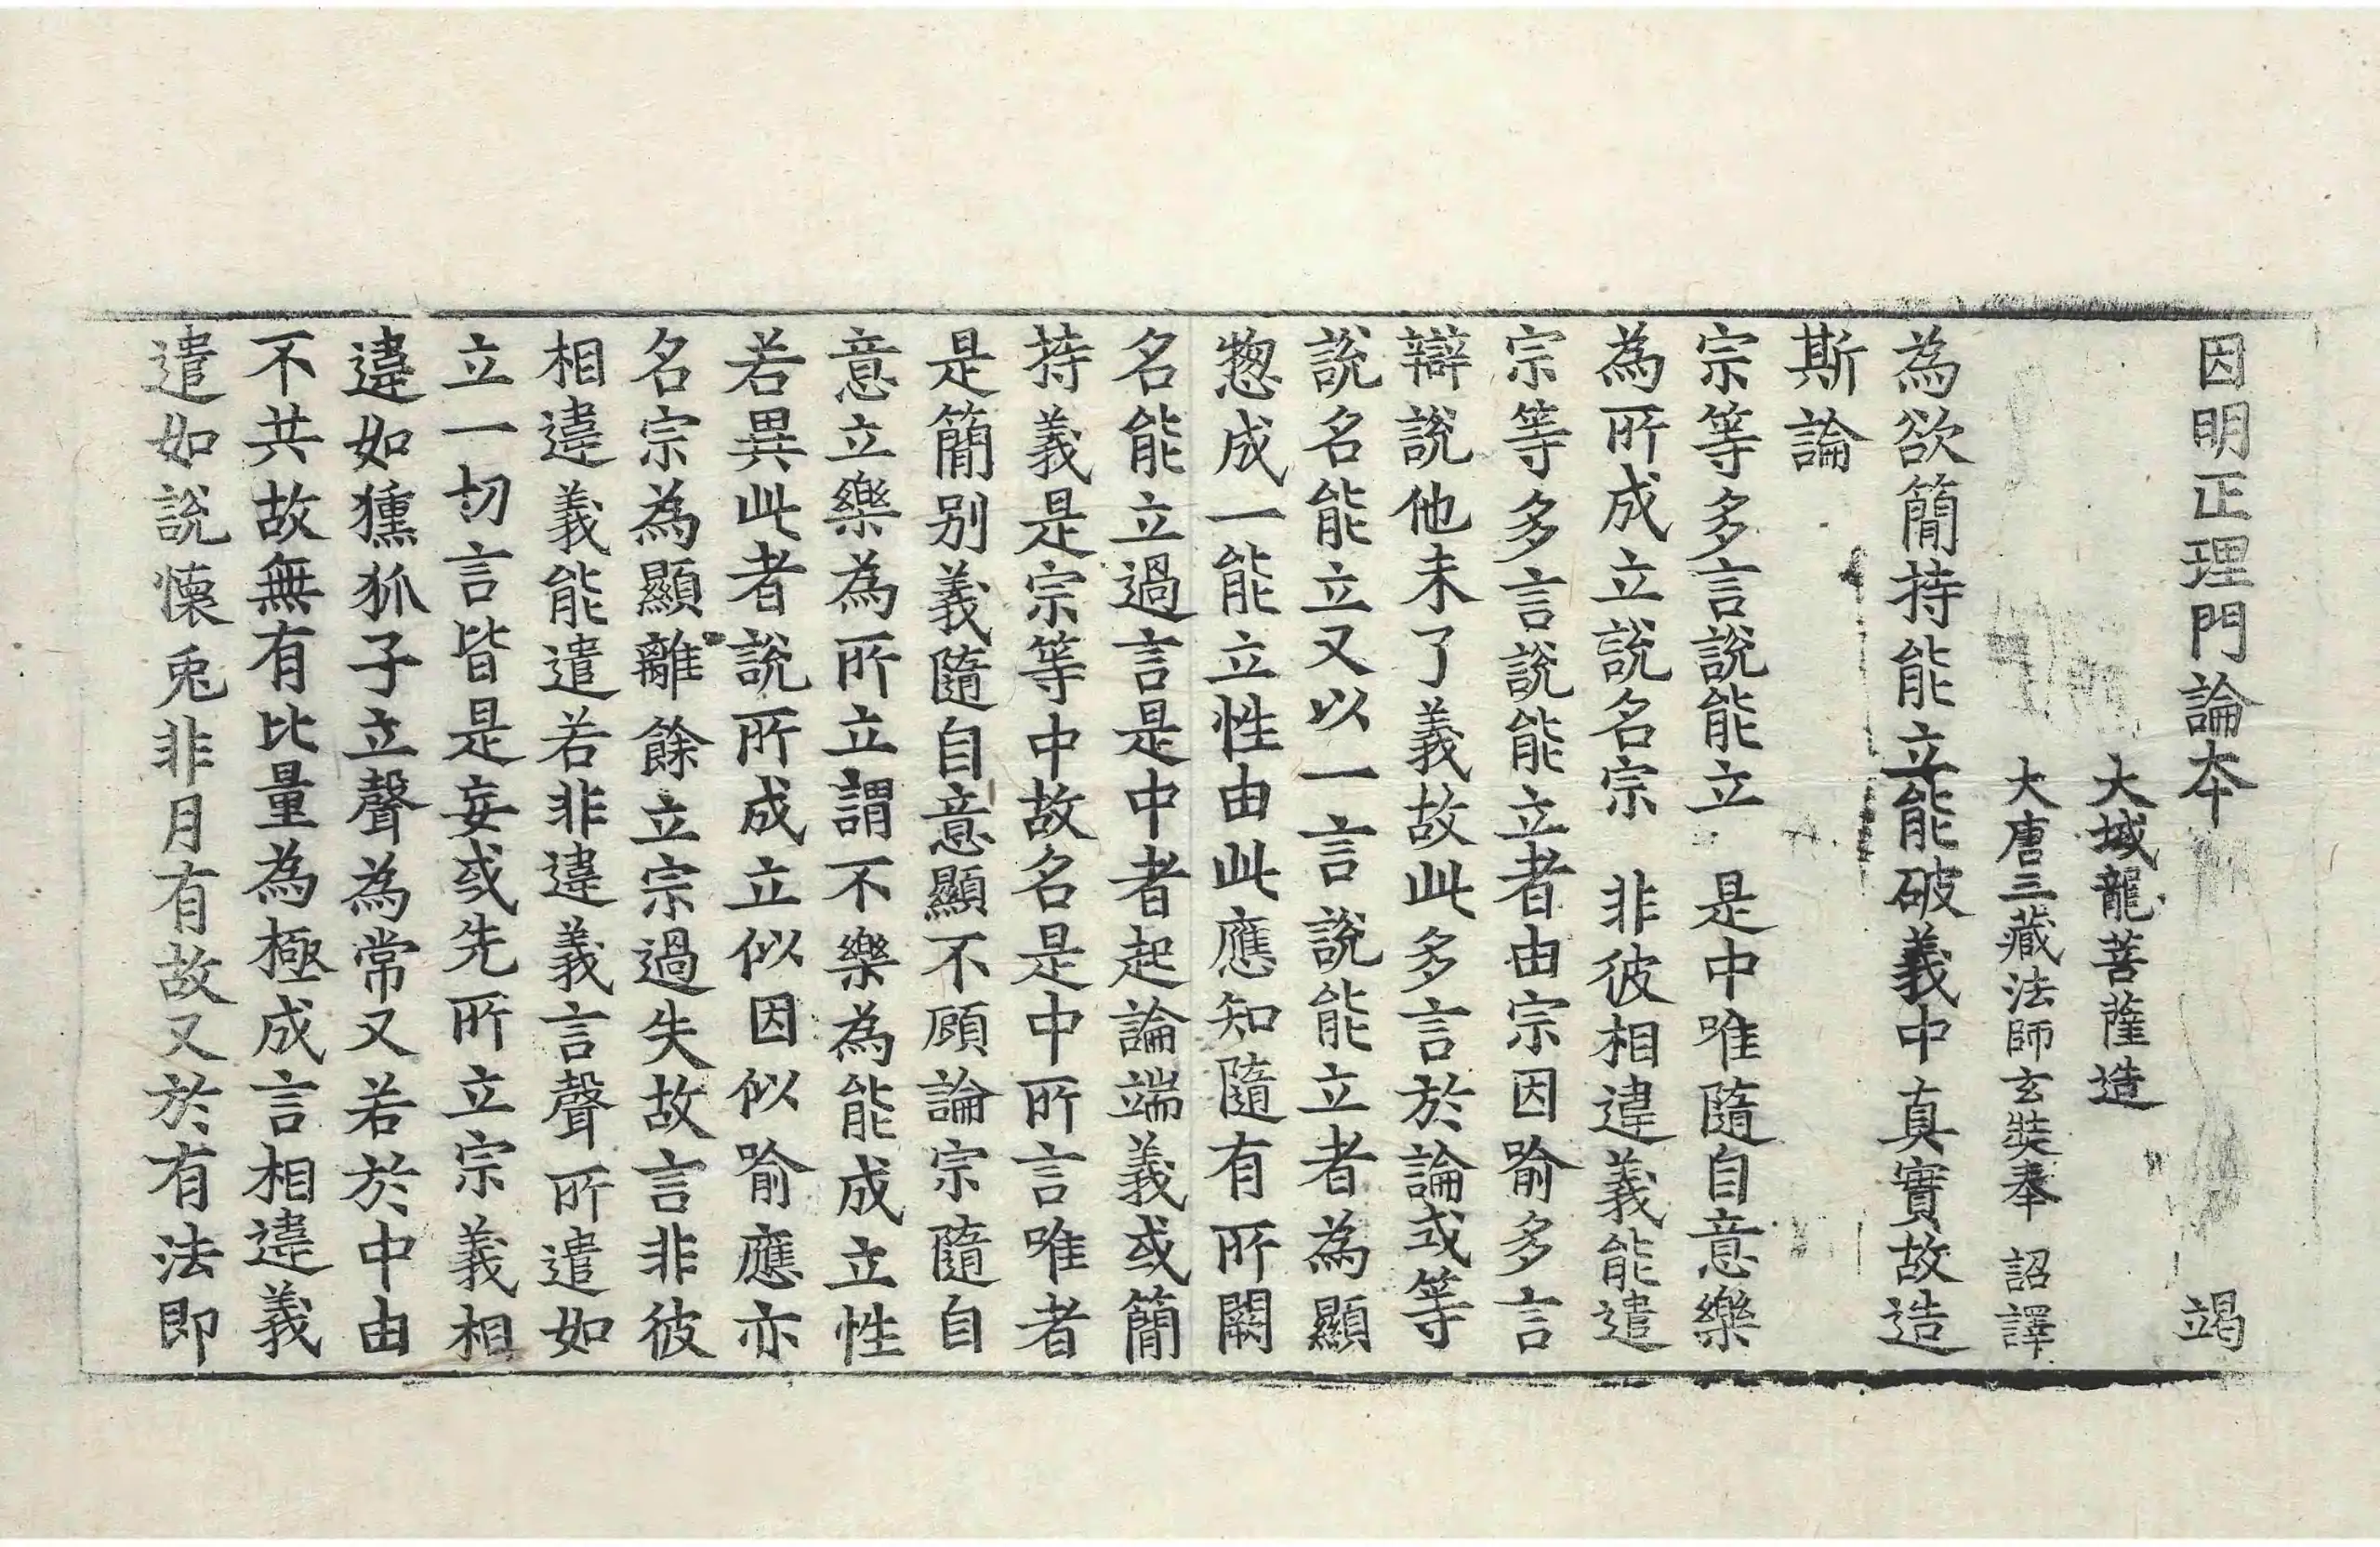 因明正理門論本 竭
大域龍菩薩造
大唐三藏法師玄奘奉 詔譯
為欲簡持能立能破義中真實故造
斯論
宗等多言說能立 是中唯隨自意樂
為所成立說名宗 非彼相違義能遣
宗等多言說能立者由宗因喻多言
辯說他未了義故此多言於論或等
說名能立又以一言說能立者為顯
惣成一能立性由此應知隨有所闕
名能立過言是中者起論端義或簡
持義是宗等中故名是中所言唯者
是簡別義隨自意顯不顧論宗隨自
意立樂為所立謂不樂為能成立性
若異此者說所成立似因似喻應亦
名宗為顯離餘立宗過失故言非彼
相違義能遣若非違義言聲所遣如
立一切言皆是妄或先所立宗義相
違如獯狐子立聲為常又若於中由
不共故無有比量為極成言相違義
遣如說懷兔非月有故又於有法即